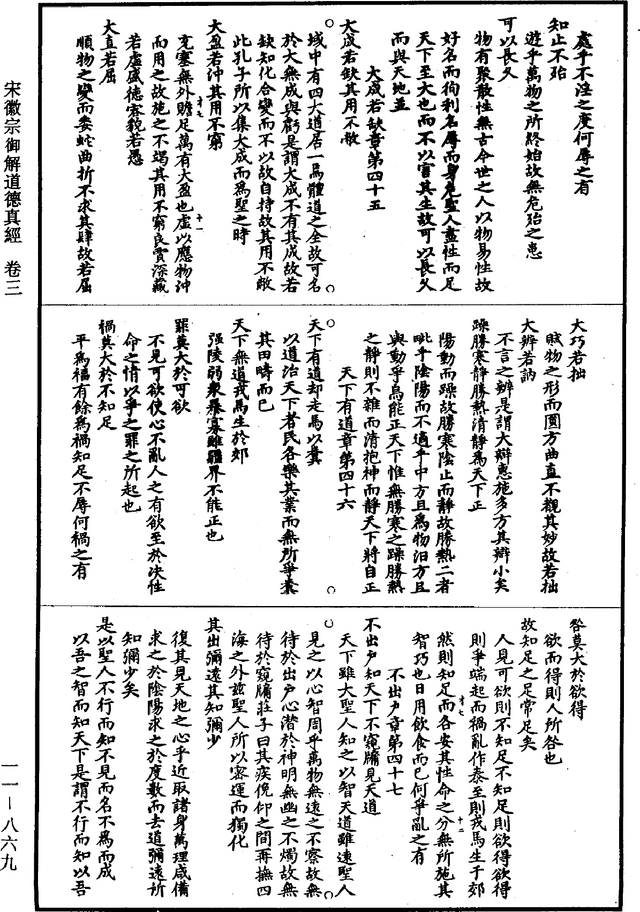 處乎不淫之度何辱之有
知止不殆
遊乎萬物之所終始故無危殆之患
可以長久
物有聚散性無古今世之人以物易性故
好名而徇利名辱而身危聖人盡性而足
天下至大也而不以害其生故可以長久
而與天地並
大成若缺章第四十五
大成若缺其用不敝
域中有四大道居一焉體道之全故可名
於大無成與虧是謂大成不有其成故若
缺知化合變而不以故自持故其用不敝
此孔子所以集大成而為聖之時
大盈若沖其用不窮
充塞無外贍足萬有大盈也虛以應物沖
而用之故施之不竭其用不窮良賈深藏
若虛盛德容貌若愚
大直若屈
順物之變而委蛇曲折不求其肆故若屈
大巧若拙
賦物之形而圜方曲直不覩其妙故若拙
大辯若訥
不言之辯是謂大辯惠施多方其辯小矣
躁勝寒靜勝熱清靜為天下正
陽動而躁故勝寒陰止而靜故勝熱二者
毗乎陰陽而不適乎中方且為物汩方且
與動爭烏能正天下惟無勝寒之躁勝熱
之靜則不雜而清抱神而靜天下將自正
天下有道章第四十六
天下有道却走馬以糞
以道治天下者民各樂其業而無所爭糞
其田疇而已
天下無道戎馬生於郊
強陵弱衆暴寡雖疆界不能正也
罪莫大於可欲
不見可欲使心不亂人之有欲至於决性
命之情以爭之罪之所起也
禍莫大於不知足
平為福有餘為禍知足不辱何禍之有
咎莫大於欲得
欲而得則人所咎也
故知足之足常足矣
人見可欲則不知足不知足則欲得欲得
則爭端起而禍亂作泰至則戎馬生于郊
然則知足而各安其性命之分無所施其
智巧也日用飲食而已何爭亂之有
不出戶章第四十七
不出戶知天下不窺牖見天道
天下雖大聖人知之以智天道雖遠聖人
見之以心智周乎萬物無遠之不察故無
待於出戶心潛於神明無幽之不燭故無
待於窺牖莊子曰其疾俛仰之間再撫四
海之外茲聖人所以密運而獨化
其出彌遠其知彌少
復其見天地之心乎近取諸身萬理咸備
求之於陰陽求之於度數而去道彌遠所
知彌少矣
是以聖人不行而知不見而名不為而成
以吾之智而知天下是謂不行而知以吾
宋徽宗御解道德真經 卷三
一一－八六九